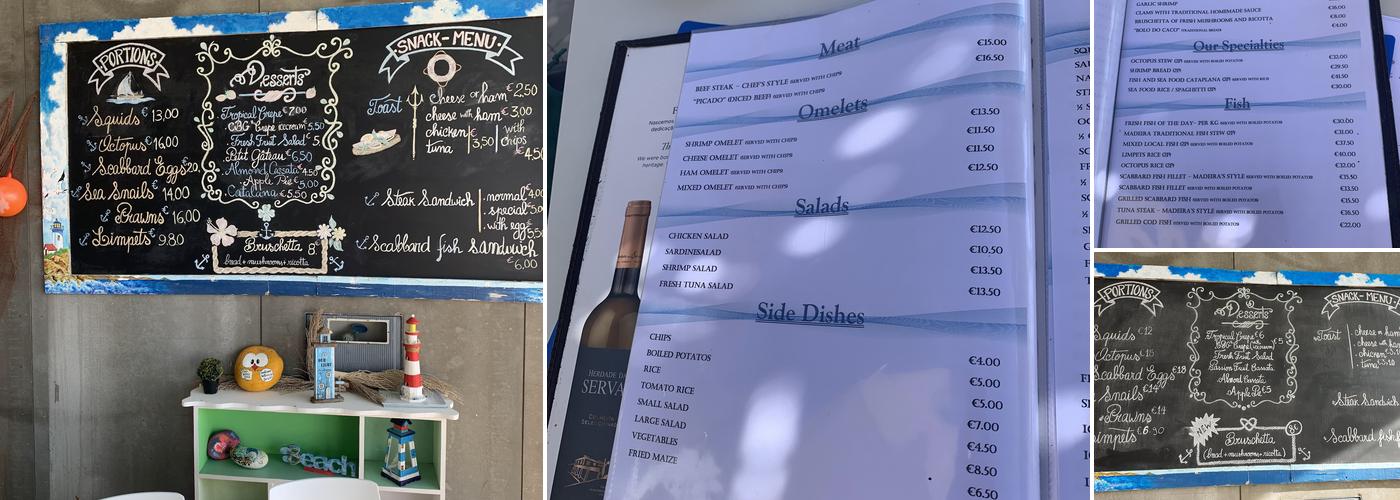 PORTIONS
Squids € 13,00
Octopus €16.00
Scabbard Eggs €20,
Sea Snails € 14.00
Prawns € 16,00
Limpets € 9.80
Desserts
Tropical Crepe € 7.00
Crepe icecream 5.50
Fresh Fruit Salad € 5.
Petit Gâteau € 6.50
Almond Cassata € 4.50
Apple Pie € 5,00
Catalana € 5.50
Bruschetta 8€
bread + mushrooms + ricotta
SNACK-MENU
Toast
cheese or ham € 2,50
cheese with ham € 3,00
chicken
tuna
3,50
with chips
4,50
Steak Sandwich
normal
special
with egg
Scabbard fish sandwich
€ 6,00
Beach
Meat
BEEF STEAK – CHEF'S STYLE SERVED WITH CHIPS €15.00
"PICADO" (DICED BEEF) SERVED WITH CHIPS €16.50
Omelets
SHRIMP OMELET SERVED WITH CHIPS €13.50
CHEESE OMELET SERVED WITH CHIPS €11.50
HAM OMELET SERVED WITH CHIPS €11.50
MIXED OMELET SERVED WITH CHIPS €12.50
Salads
CHICKEN SALAD €12.50
SARDINESALAD €10.50
SHRIMP SALAD €13.50
FRESH TUNA SALAD €13.50
Side Dishes
CHIPS €4.00
BOILED POTATOS €5.00
RICE €5.00
TOMATO RICE €7.00
SMALL SALAD €4.50
LARGE SALAD €8.50
VEGETABLES €6.50
FRIED MAIZE
HERDADE
SERVA
GARLIC SHRIMP
CLAMS WITH TRADITIONAL HOMEMADE SAUCE €16.00
BRUSCHETTA OF FRISH MUSHROOMS AND RICOTTA €8.00
"BOLO DO CACO" (TRADITIONAL BREAD) €4.00
Our Specialties
OCTOPUS STEW (2P) SERVED WITH BOILED POTATOS €32.00
SHRIMP BREAD (2P) €29.50
FISH AND SEA FOOD CATAPLANA (2P) SERVED WITH RICE €41.50
SEA FOOD RICE / SPAGHETTI (2P) €30.00
Fish
FRESH FISH OF THE DAY- PER KG SERVED WITH BOILED POTATOS €30.00
MADEIRA TRADITIONAL FISH STEW (2P) €31.00
MIXED LOCAL FISH (2P) SERVED WITH BOILED POTATOS €37.50
LIMPETS RICE (2P) €40.00
OCTOPUS RICE (2P) €32.00
SCABBARD FISH FILLET – MADEIRA'S STYLE SERVED WITH BOILED POTATOS €15.50
SCABBARD FISH FILLET SERVED WITH BOILED POTATOS €13.50
GRILLED SCABBARD FISH SERVED WITH BOILED POTATOS €15.50
TUNA STEAK – MADEIRA'S STYLE SERVED WITH BOILED POTATOS €16.50
GRILLED COD FISH SERVED WITH BOILED POTATOS €22.00
PORTIONS
Squids €12
Octopus €15
Scabbard Eggs €18
Snails €14
Prawns €14
impets €8.90
Desserts
Tropical Crepe € 6
Fresh Fruit Salad
Passion Fruit Cassata
Almond Cassata
Apple Pie € 5
Bruschetta
(bread + mushrooms + ricotta)
SNACK-MENU
Toast
cheese or ham
cheese with ham
chicken
tuna
Steak Sandwich
Scabbard fish